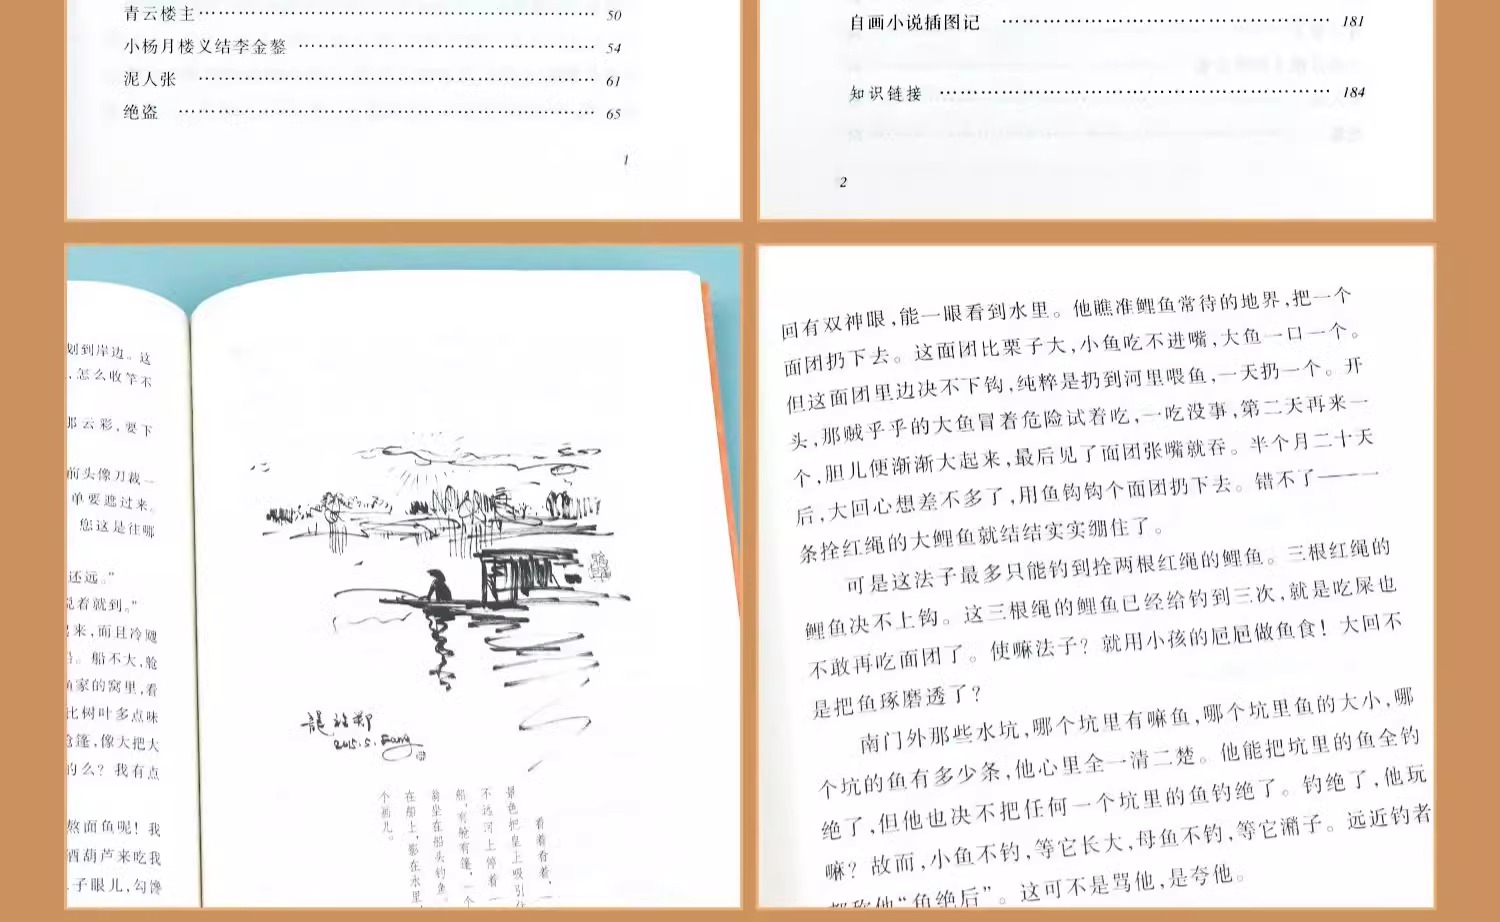 青云楼主 50
小杨月楼义结李金鳌 54
泥人张 61
绝盗 65
1
自画小说插图记 181
知识链接 184
2
划到岸边。这
怎么收竿不
那云彩,要下
前头像刀裁一
单要遮过来。
您这是往哪
还远。”
说着就到。”
来,而且冷飕
船不大,舱
家的窝里,看
比树叶多点味
舱篷,像大把大
的么?我有点
熬面鱼呢!我
酒葫芦来吃我
子眼儿,勾馋
2015.5.
看着看着,一
景色把皇上吸引住
不远河上停着一
船,有舱有篷,一个
翁坐在船头钓鱼。
在船上,影在水里
个画儿。
回有双神眼,能一眼看到水里。他瞧准鲤鱼常待的地界,把一个
面团扔下去。这面团比栗子大,小鱼吃不进嘴,大鱼一口一个。
但这面团里边决不下钩,纯粹是扔到河里喂鱼,一天扔一个。开
头,那贼乎乎的大鱼冒着危险试着吃,一吃没事,第二天再来一
个,胆儿便渐渐大起来,最后见了面团张嘴就吞。半个月二十天
后,大回心想差不多了,用鱼钩钩个面团扔下去。错不了——一
条拴红绳的大鲤鱼就结结实实绷住了。
可是这法子最多只能钓到拴两根红绳的鲤鱼。三根红绳的
鲤鱼决不上钩。这三根绳的鲤鱼已经给钓到三次,就是吃屎也
不敢再吃面团了。使嘛法子?就用小孩的㞎㞎做鱼食!大回不
是把鱼琢磨透了?
南门外那些水坑,哪个坑里有嘛鱼,哪个坑里鱼的大小,哪
个坑的鱼有多少条,他心里全一清二楚。他能把坑里的鱼全钓
绝了,但他也决不把任何一个坑里的鱼钓绝了。钓绝了,他玩
嘛?故而,小鱼不钓,等它长大,母鱼不钓,等它潲子。远近钓者
都称他“鱼绝后”。这可不是骂他,是夸他。